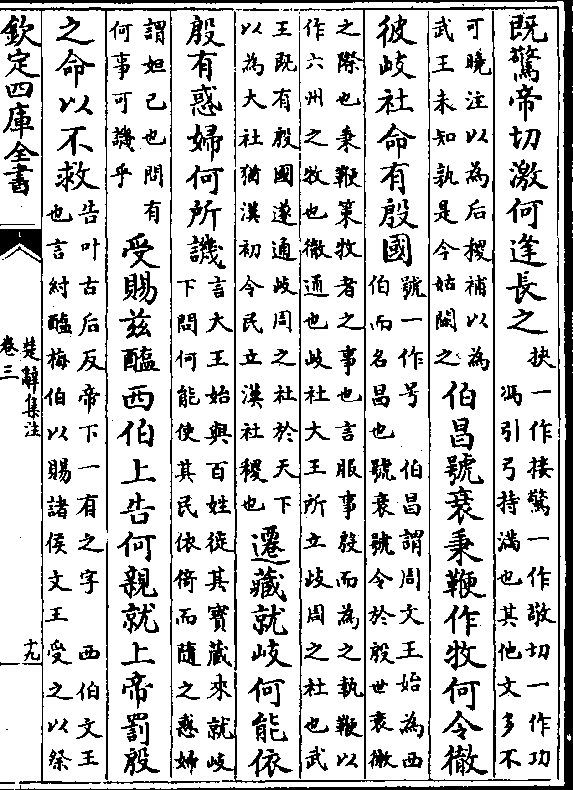 既驚帝切激何逢長之抉一作接驚一作敬切一作功
馮引弓持滿也其他文多不
可曉注以為后稷補以為
武王未知孰是今姑闕之伯昌號衰秉鞭作牧何令徹
彼岐社命有殷國號一作号 伯昌謂周文王始為西
伯而名昌也 號衰號令於殷世衰微
之際也秉鞭策牧者之事也言服事殷而為之執鞭以
作六州之牧也徹通也岐社大王所立岐周之社也武
王既有殷國遂通岐周之社於天下
以為大社猶漢初令民立漢社稷也遷藏就岐何能依
殷有惑婦何所譏言大王始與百姓徙其寶藏來就岐
下問何能使其民依倚而隨之惑婦
謂妲己也問有
何事可譏乎受賜兹醢西伯上告何親就上帝罰殷
之命以不救告叶古后反帝下一有之字 西伯文王
也言紂醢梅伯以賜諸侯文王受之以祭
欽定四庫全書
楚辭集注
卷三
十九